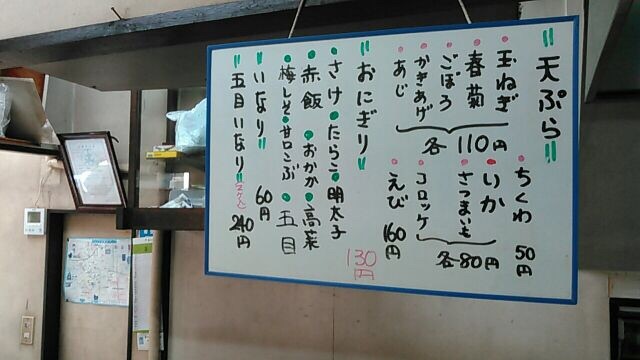 〃天ぷら〃
玉ねぎ
春菊
ごぼう
かきあげ
各110円
あじ
ちくわ 50円
いか
さつまいも
コロッケ
各80円
えび 160円
〃おにぎり〃
さけ たらこ 明太子
赤飯 おかか 高菜
梅しそ 甘口こぶ 五目
130円
〃いなり〃 60円
〃五目いなり〃 240円